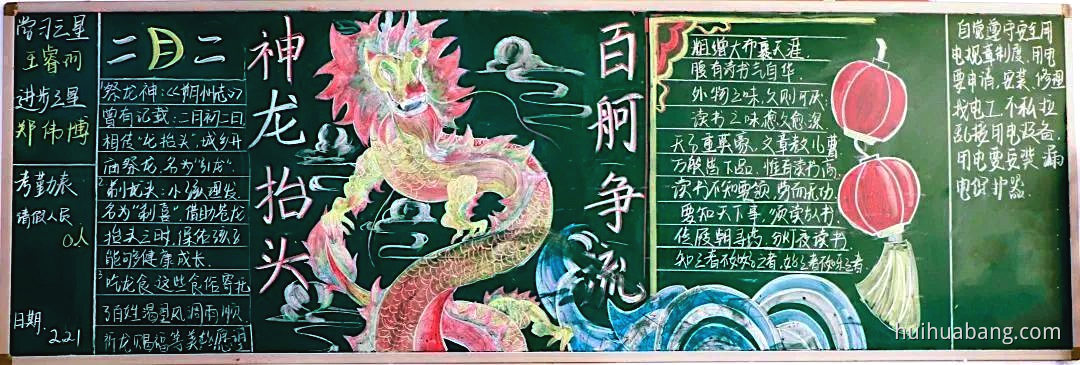 学习之星
王睿润
进步之星
郑伟博
考勤表
请假人民
0人
日期
2.21
二月二
祭龙神:《朔州志》
曾有记载:二月初二日
相传"龙抬头",城乡于
庙祭龙,名为"引龙".
2剃龙头:小孩理发,
名为"剃喜"借助苍龙
抬头之时,保佑孩子
能够健康成长.
3吃龙食:这些食俗寄托
了百姓渴望风调雨顺、
祈龙赐福等美好愿望
神龙抬头
百舸争流
粗缯大布裹天涯
腹有诗书气自华.
外物之味,久则可厌;
读书之味,愈久愈深
天子重英豪,文章教儿曹
万般皆下品,惟有读书高.
读书不知要领,劳而无功.
要知天下事,须读古人书.
知之者不如好之者,好之者不如乐之者.
自觉遵守安全用
电规章制度,用电
要申请,安装、修理
找电工,不私拉
乱接用电设备.
用电要安装漏
电保护器.
huihuabang.com